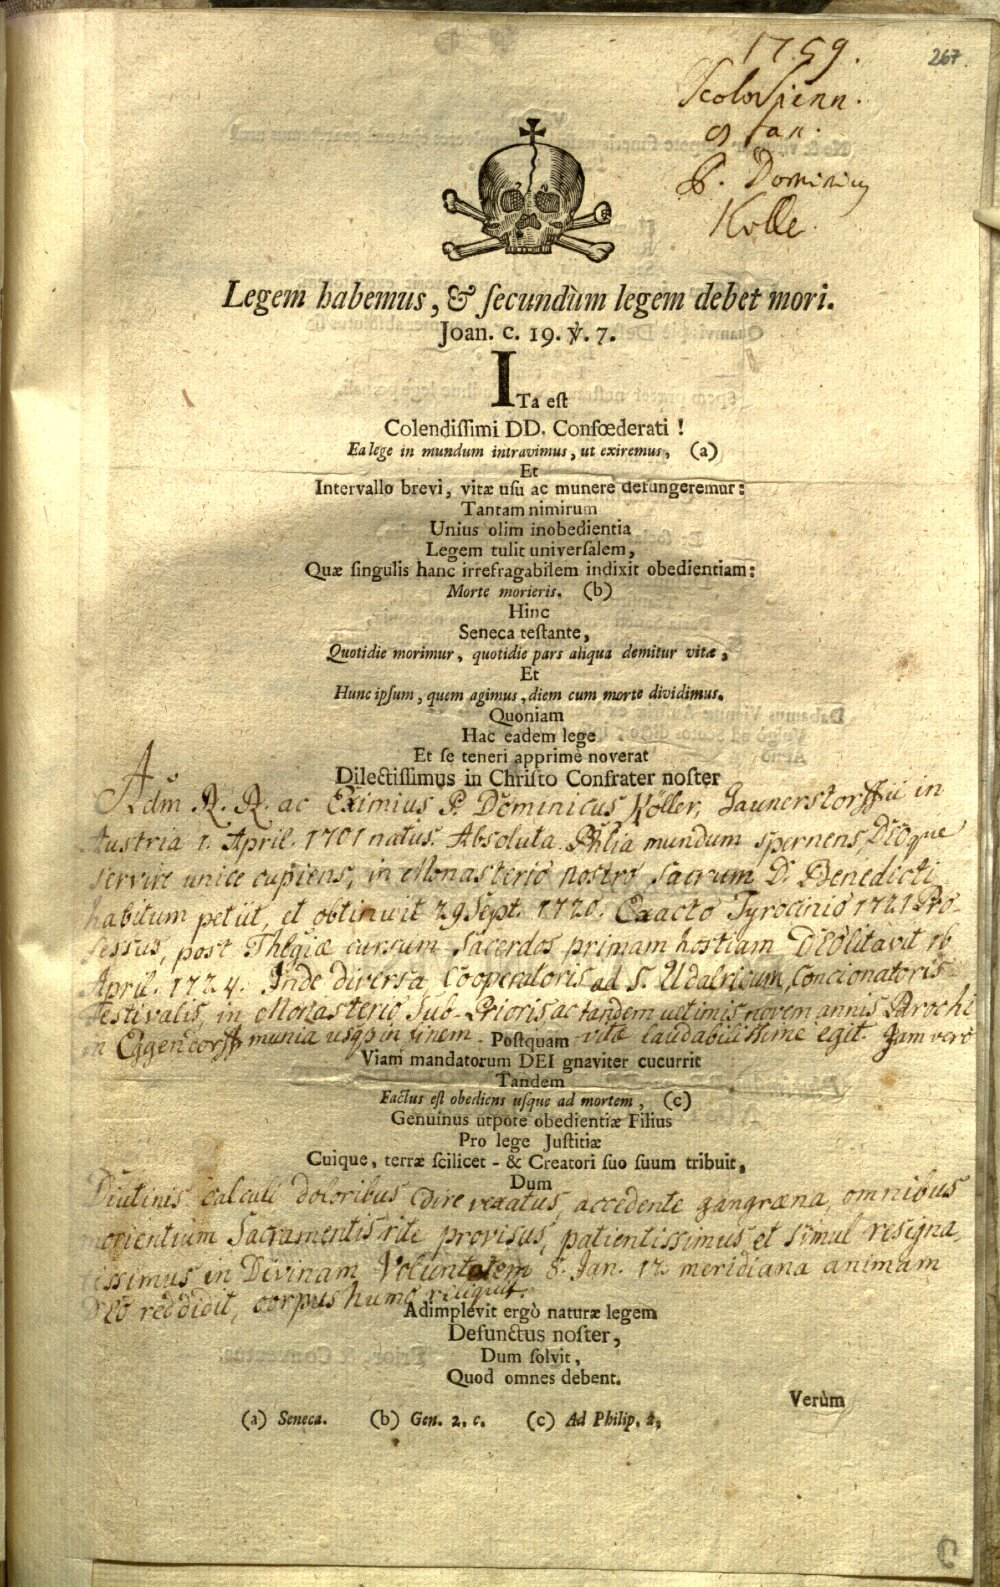 267.
1759.
Scotor Vienn.
9 Jan.
P. Dominicus
Kolle.
Legem habemus, & ſecundùm legem debet mori.
Joan. c. 19. ℣. 7.
ITa eſt
Colendiſſimi DD. Confœderati !
Ea lege in mundum intravimus, ut exiremus, (a)
Et
Intervallo brevi, vitæ uſu ac munere defungeremur:
Tantam nimirum
Unius olim inobedientia
Legem tulit univerſalem,
Quæ ſingulis hanc irrefragabilem indixit obedientiam:
Morte morieris. (b)
Hinc
Seneca teſtante,
Quotidie morimur, quotidie pars aliqua demitur vitæ,
Et
Hunc ipſum, quem agimus, diem cum morte dividimus.
Quoniam
Hac eadem lege
Et ſe teneri apprimè noverat
Dilectiſſimus in Chriſto Confrater noſter
Adm R. R. ac Eximius P. Dominicus Köller, Gaunerstorffii in
Austria 1. April. 1701 natus. Absoluta Phlia mundum spernens, DEoque
servire unice cupiens, in Monasterio nostro Sacrum D. Benedicti
habitum petiit, et obtinuit 29 Sept. 1720. Exacto Tyrocinio 1721 Pro-
fessus, post Thlgiæ cursum Sacerdos primam hostiam DEO litavit 16
April. 1724. Inde diversa Cooperatoris ad S. Udalricum, Concionatoris
Festivalis, in Monasterio Sub-Prioris ac tandem ultimis novem annis Parochi
in Eggendorff munia usq in finem vitæ laudabilissime egit. Jam vero
Poſtquam
Viam mandatorum DEI gnaviter cucurrit
Tandem
Factus eſt obediens uſque ad mortem, (c)
Genuinus utpote obedientiæ Filius
Pro lege Juſtitiæ
Cuique, terræ ſcilicet - & Creatori ſuo ſuum tribuit,
Dum
Diutinis calculi doloribus dire vexatus, accedente gangræna, omnibus
morientium Sacramentis rite provisus, patientissimus et simul resigna-
tissimus in Divinam Voluntatem 8. Jan. 12 meridiana animam
DEO reddidit, corpus humo reliquit.
Adimplevit ergò naturæ legem
Defunctus noſter,
Dum ſolvit,
Quod omnes debent.
Verùm
(a) Seneca. (b) Gen. 2. c. (c) Ad Philip. 2.